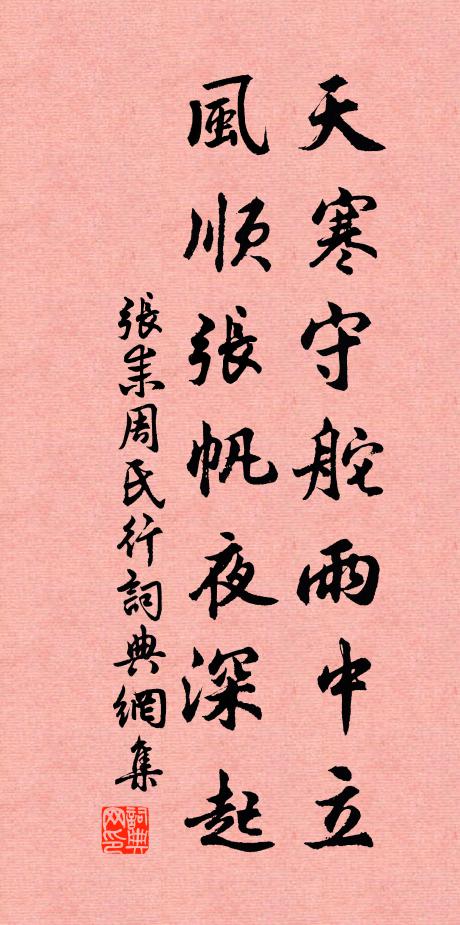 天寒守舵雨中立
風順張帆夜深起
張耒周氏行詞典網集
詞典网印